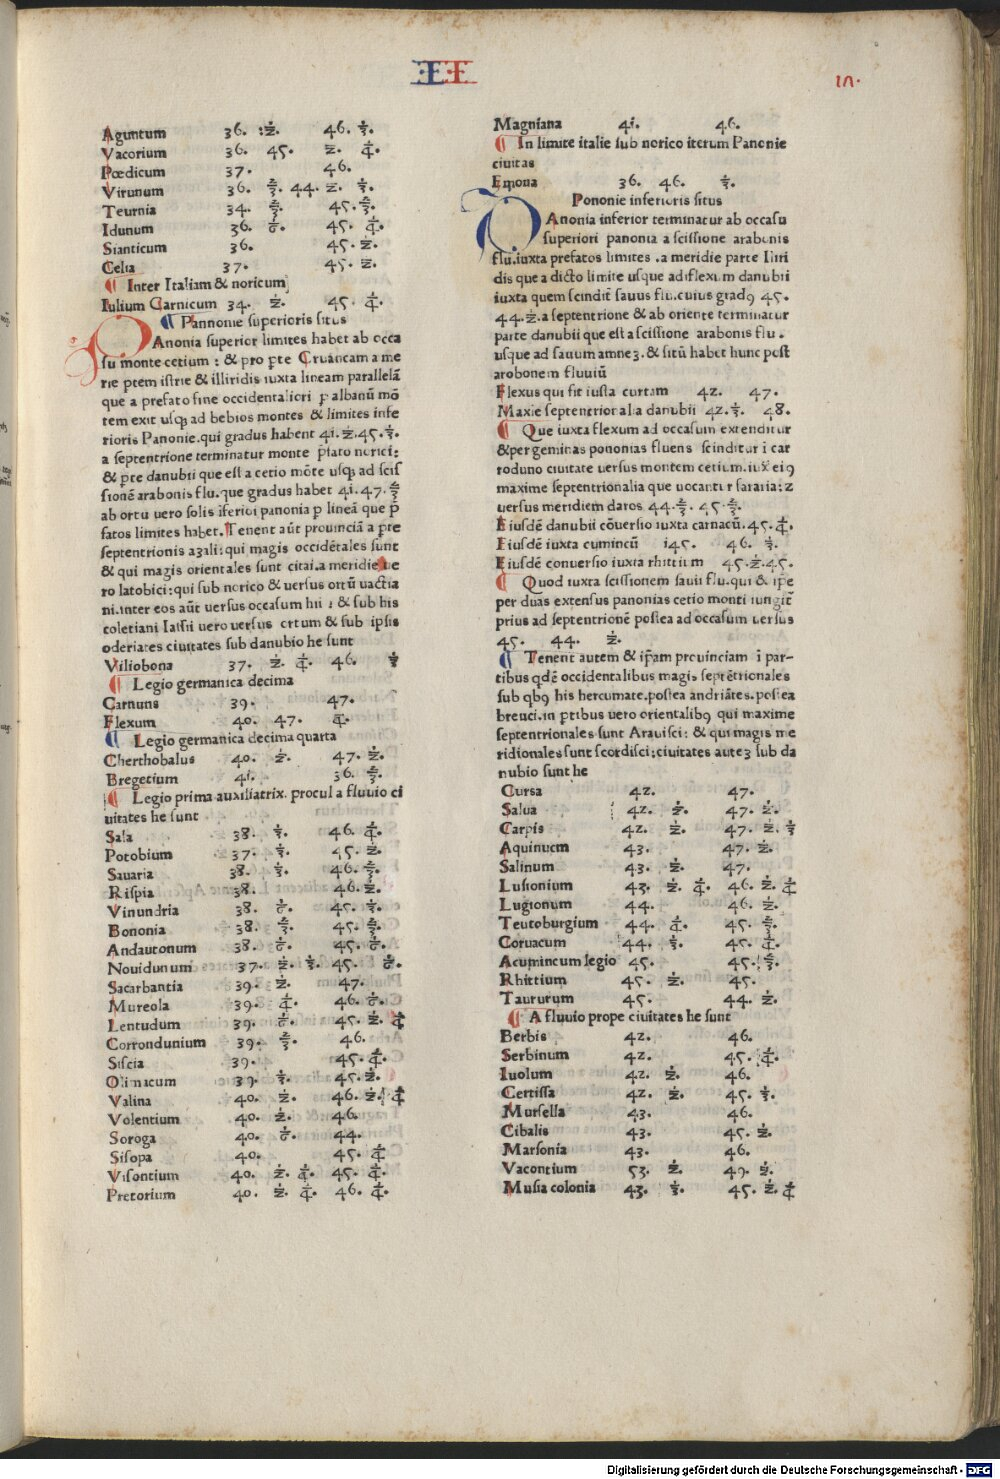 II
Aguntum 36. ½. 46. ⅓.
Vacorium 36. 45. ½. ¼.
Pœdicum 37. 46.
Virunum 36. ⅔. 44. ½. ⅓.
Teurnia 34. ⅔. 45. ⅔.
Idunum 36. 1/6. 45. ¼.
Sianticum 36. 45. ½.
Celia 37. 45. ½.
¶ Inter Italiam & noricum
Iulium Carnicum 34. ½. 45. ¼.
¶ Pannonie superioris situs
PAnonia superior limites habet ab occa
su monte cetium : & pro ꝑte Cruancam a me
rie ptem istrie & illiridis iuxta lineam parallelā
que a prefato fine occidentaliori ꝑ albanū mō
tem exit usqꝫ ad bebios montes & limites infe
rioris Panonie.qui gradus habent 41.½.45.⅓.
a septentrione terminatur monte p̄fato norici:
& ꝑte danubii que est a cetio mōte usqꝫ ad scis
sionē arabonis flu.que gradus habet 41.47.⅔
ab ortu uero solis iferioi panonia ꝑ lineā que p̄
fatos limites habet.Tenent aūt prouinciā a ꝑte
septentrionis azali:qui magis occidētales sunt
& qui magis orientales sunt citai.a meridie ue
ro latobici:qui sub norico & uersus ortū uactia
ni.inter eos aūt uersus occasum hii : & sub his
coletiani Iassii uero uersus ortum & sub ipsis
oderiates ciuitates sub danubio he sunt
Viliobona 37. ½. ¼. 46. ⅓
¶ Legio germanica decima
Carnuns 39. 47.
Flexum 40. 47. ¼.
¶ Legio germanica decima quarta
Cherthobalus 40. ½. 47. ½.
Bregetium 41. 36. ⅔.
¶ Legio prima auxiliatrix. procul a fluuio ci
uitates he sunt
Sala 38. ⅓. 46. ¼.
Potobium 37. ⅓. 45. ½.
Sauaria 38. ⅓. 46. ⅔.
Rispia 38. 46. ½.
Vinundria 38. 1/6. 45. ⅓.
Bononia 38. ⅔. 45. ⅔.
Andautonum 38. 1/6. 45. 1/6.
Nouidunum 37. ½. ⅓. 45. 1/6.
Sacarbantia 39. ½. 47.
Mureola 39. ¼. 46. 1/6.
Lentudum 39. 1/6. 45. ½. ¼
Corrondunium 39. ⅔. 46.
Siscia 39. 45. ¼.
Olimacum 39. ⅓. 45. ½.
Valina 40. ½. 46. ½. ¼
Volentium 40. ½. 46.
Soroga 40. 1/6. 44.
Sisopa 40. 45. ¼
Visontium 40. ½. ¼. 45. ¼.
Pretorium 40. ½. ¼. 46. ¼.
Magniana 41. 46.
¶ In limite italie sub norico iterum Panonie
ciuitas
Emona 36. 46. ⅓.
Pononie inferioris situs
PAnonia inferior terminatur ab occasu
superiori panonia a scissione arabonis
flu.iuxta prefatos limites .a meridie parte Illiri
dis que a dicto limite usque ad flexum danubii
iuxta quem scindit sauus flu.cuius gradꝰ 45.
44.½.a septentrione & ab oriente terminatur
parte danubii que est a scissione arabonis flu .
usque ad sauum amneꝫ.& sitū habet hunc post
arobonem fluuiū
Flexus qui fit iusta curtam 42. 47.
Maxie septentrior alia danubii 42.⅓. 48.
¶ Que iuxta flexum ad occasum extenditur
&per geminas pononias fluens scinditur ī car
roduno ciuitate uersus montem cetium.iux̄ eiꝰ
maxime septentrionalia que uocantur sararia:2
uersus meridiem daros 44.⅔. 45.⅔.
Eiusdē danubii cōuersio iuxta carnacū.45.¼.
Eiusdē iuxta cumincū 145. 46. ⅓.
Eiusdē conuersio iuxta rhittium 45.½.45.
¶ Quod iuxta scissionem sauii flu.qui & ipse
per duas extensus panonias cetio monti iungit̄
prius ad septentrionē postea ad occasum uersus
45. 44. ½.
¶ Tenent autem & ip̄am prouinciam ī par-
tibus qdē occidentalibus magis septētrionales
sub qbꝰ his hercumate.postea andriātes.postea
breuci.in ꝑtibus uero orientalibꝰ qui maxime
septentrionales sunt Arauisci: & qui magis me
ridionales sunt scordisci:ciuitates auteꝫ sub da
nubio sunt he
Cursa 42. 47.
Salua 42. ½. 47. ½.
Carpis 42. ½. 47. ½. ⅓
Aquinucm 43. 47. ½.
Salinum 43. ½. 47.
Lusionium 43. ½. ¼. 46. ½. ¼
Lugionum 44. 46. ½.
Teutoburgium 44. ¼. 45. ⅔.
Coruacum 44. ⅓. 45. ¼.
Acumincum legio 45. 45. ⅔.
Rhittium 45. ½. 45.
Taururum 45. 44. ½.
¶ A fluuio prope ciuitates he sunt
Berbis 42. 46.
Serbinum 42. 45. ¼.
Iuolum 42. ½. 46.
Certissa 42. ½. 45. ⅓.
Mursella 43. 46.
Cibalis 43. 45. ½.
Marsonia 43. 46.
Vacontium 53. ½. 49. ½.
Musia colonia 43. ⅓. 45. ½. ¼
Digitalisierung gefördert durch die Deutsche Forschungsgemeinschaft - DFG